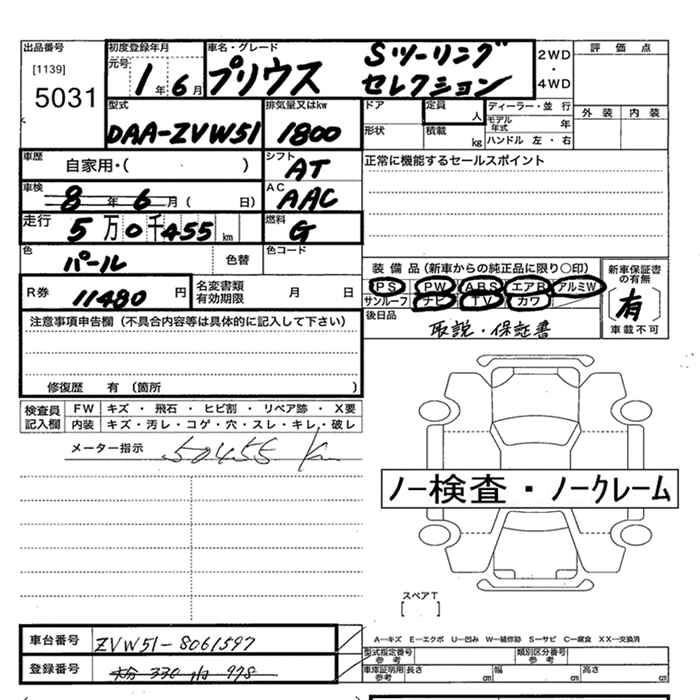 出品番号
[1139]
5031
初度登録年月
元号
1年6月
車名・グレード
プリウス
Sツーリング
セレクション
2WD
・
4WD
評価点
外装 内装
型式
DAA-ZVW51
排気量又はkw
1800
ドア
形状
定員
人
積載
kg
ディーラー・並行
モデル年式 年
ハンドル 左・右
車歴
自家用・( )
シフト
AT
正常に機能するセールスポイント
車検
8年6月( 日)
AC
AAC
走行
5万0千455km
燃料
G
色
パール
色替
色コード
装備品(新車からの純正品に限り○印)
PS PW ABS エアB アルミW
サンルーフ ナビ TV カワ
後日品
取説・保証書
新車保証書
の有無
有
車載不可
R券
11480円
名変書類
有効期限
月 日
注意事項申告欄(不具合内容等は具体的に記入して下さい)
修復歴 有(箇所 )
検査員
記入欄
FW キズ・飛石・ヒビ割・リペア跡・X要
内装 キズ・汚レ・コゲ・穴・スレ・キレ・破レ
メーター指示
50455 Km
ノー検査・ノークレーム
スペアT
[ ]
A―キズ E―エクボ U―凹み W―補修跡 S―サビ C―腐食 XX―交換済
車台番号
ZVW51-8061597
登録番号
330 978
型式指定番号
参考
類別区分番号
参考
車庫証明用
参考
長さ cm 幅 cm 高さ cm